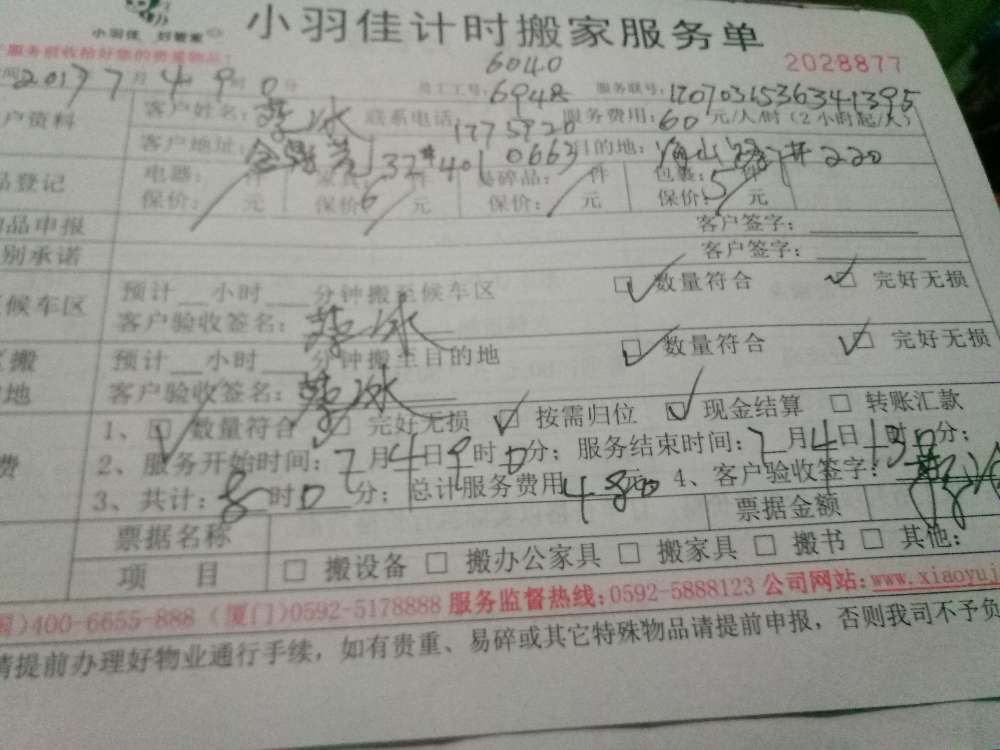 小羽佳 好管家
小羽佳计时搬家服务单
服务前收拾好您的贵重物品!
6040
2028877
2017 7月 4 9时 0分 员工工号: 6948 服务联号: 1707031536341395
客户姓名: 冰 联系电话: 1775920 服务费用: 60 元/人/时 (2小时起/人)
户资料
客户地址: 32#401 0663 目的地: 海山路#220
品登记 电器: 件 件 易碎品: 件 包裹: 5件
保价: 元 保价 6 元 保价: 元 保价: 元
物品申报 客户签字:
别承诺 客户签字:
候车区 预计 小时 分钟搬至候车区 数量符合 完好无损
客户验收签名: 冰
搬 预计 小时 分钟搬至目的地 数量符合 完好无损
地 客户验收签名: 冰
1、 数量符合 完好无损 按需归位 现金结算 转账汇款
费 2、服务开始时间: 7月4日9时0分; 服务结束时间: 7月4日13 分;
3、共计: 8时0分; 总计服务费用 480元 4、客户验收签字:
票据名称 票据金额
项 目 搬设备 搬办公家具 搬家具 搬书 其他:
)400-6655-888 (厦门)0592-5178888 服务监督热线:0592-5888123 公司网站:www.xiaoyuj
请提前办理好物业通行手续，如有贵重、易碎或其它特殊物品请提前申报，否则我司不予负